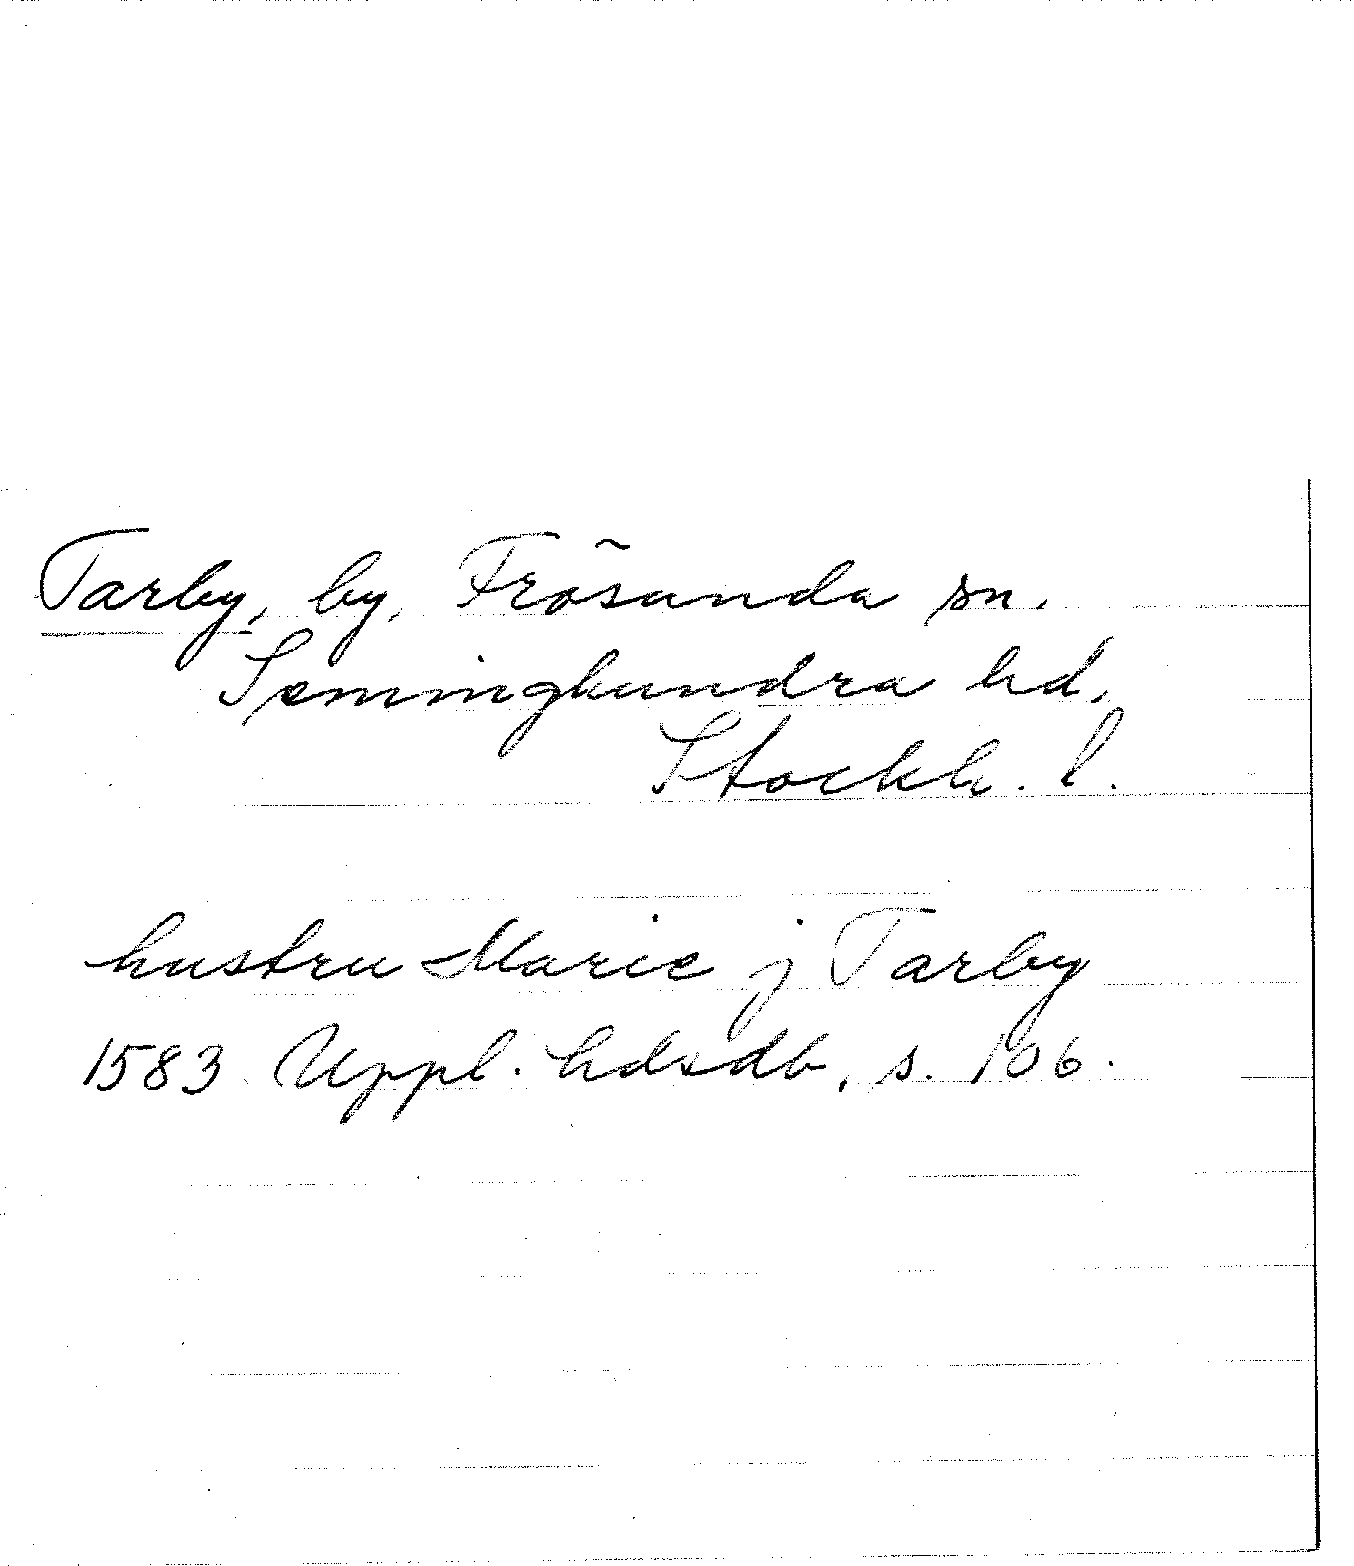 Tarby, by, Frösunda sn.
Seminghundra hd,
Stockh. l.
hustru Marie j Tarby
1583 Uppl. hdsdb, s. 106.